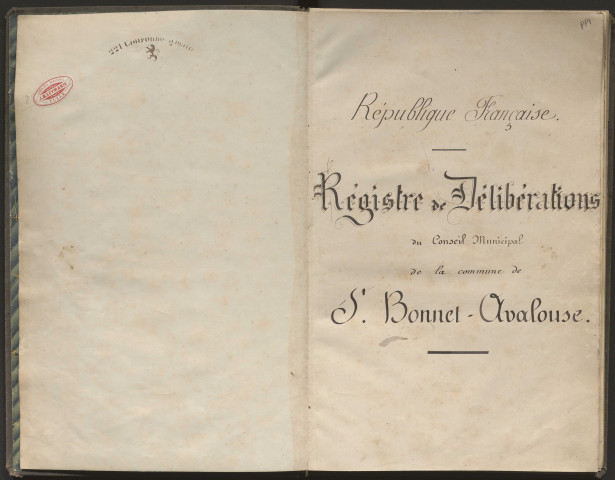 221 Couronne
République Française.
Régistre de Délibérations
du Conseil Municipal
de la commune de
St. Bonnet-Avalouse.